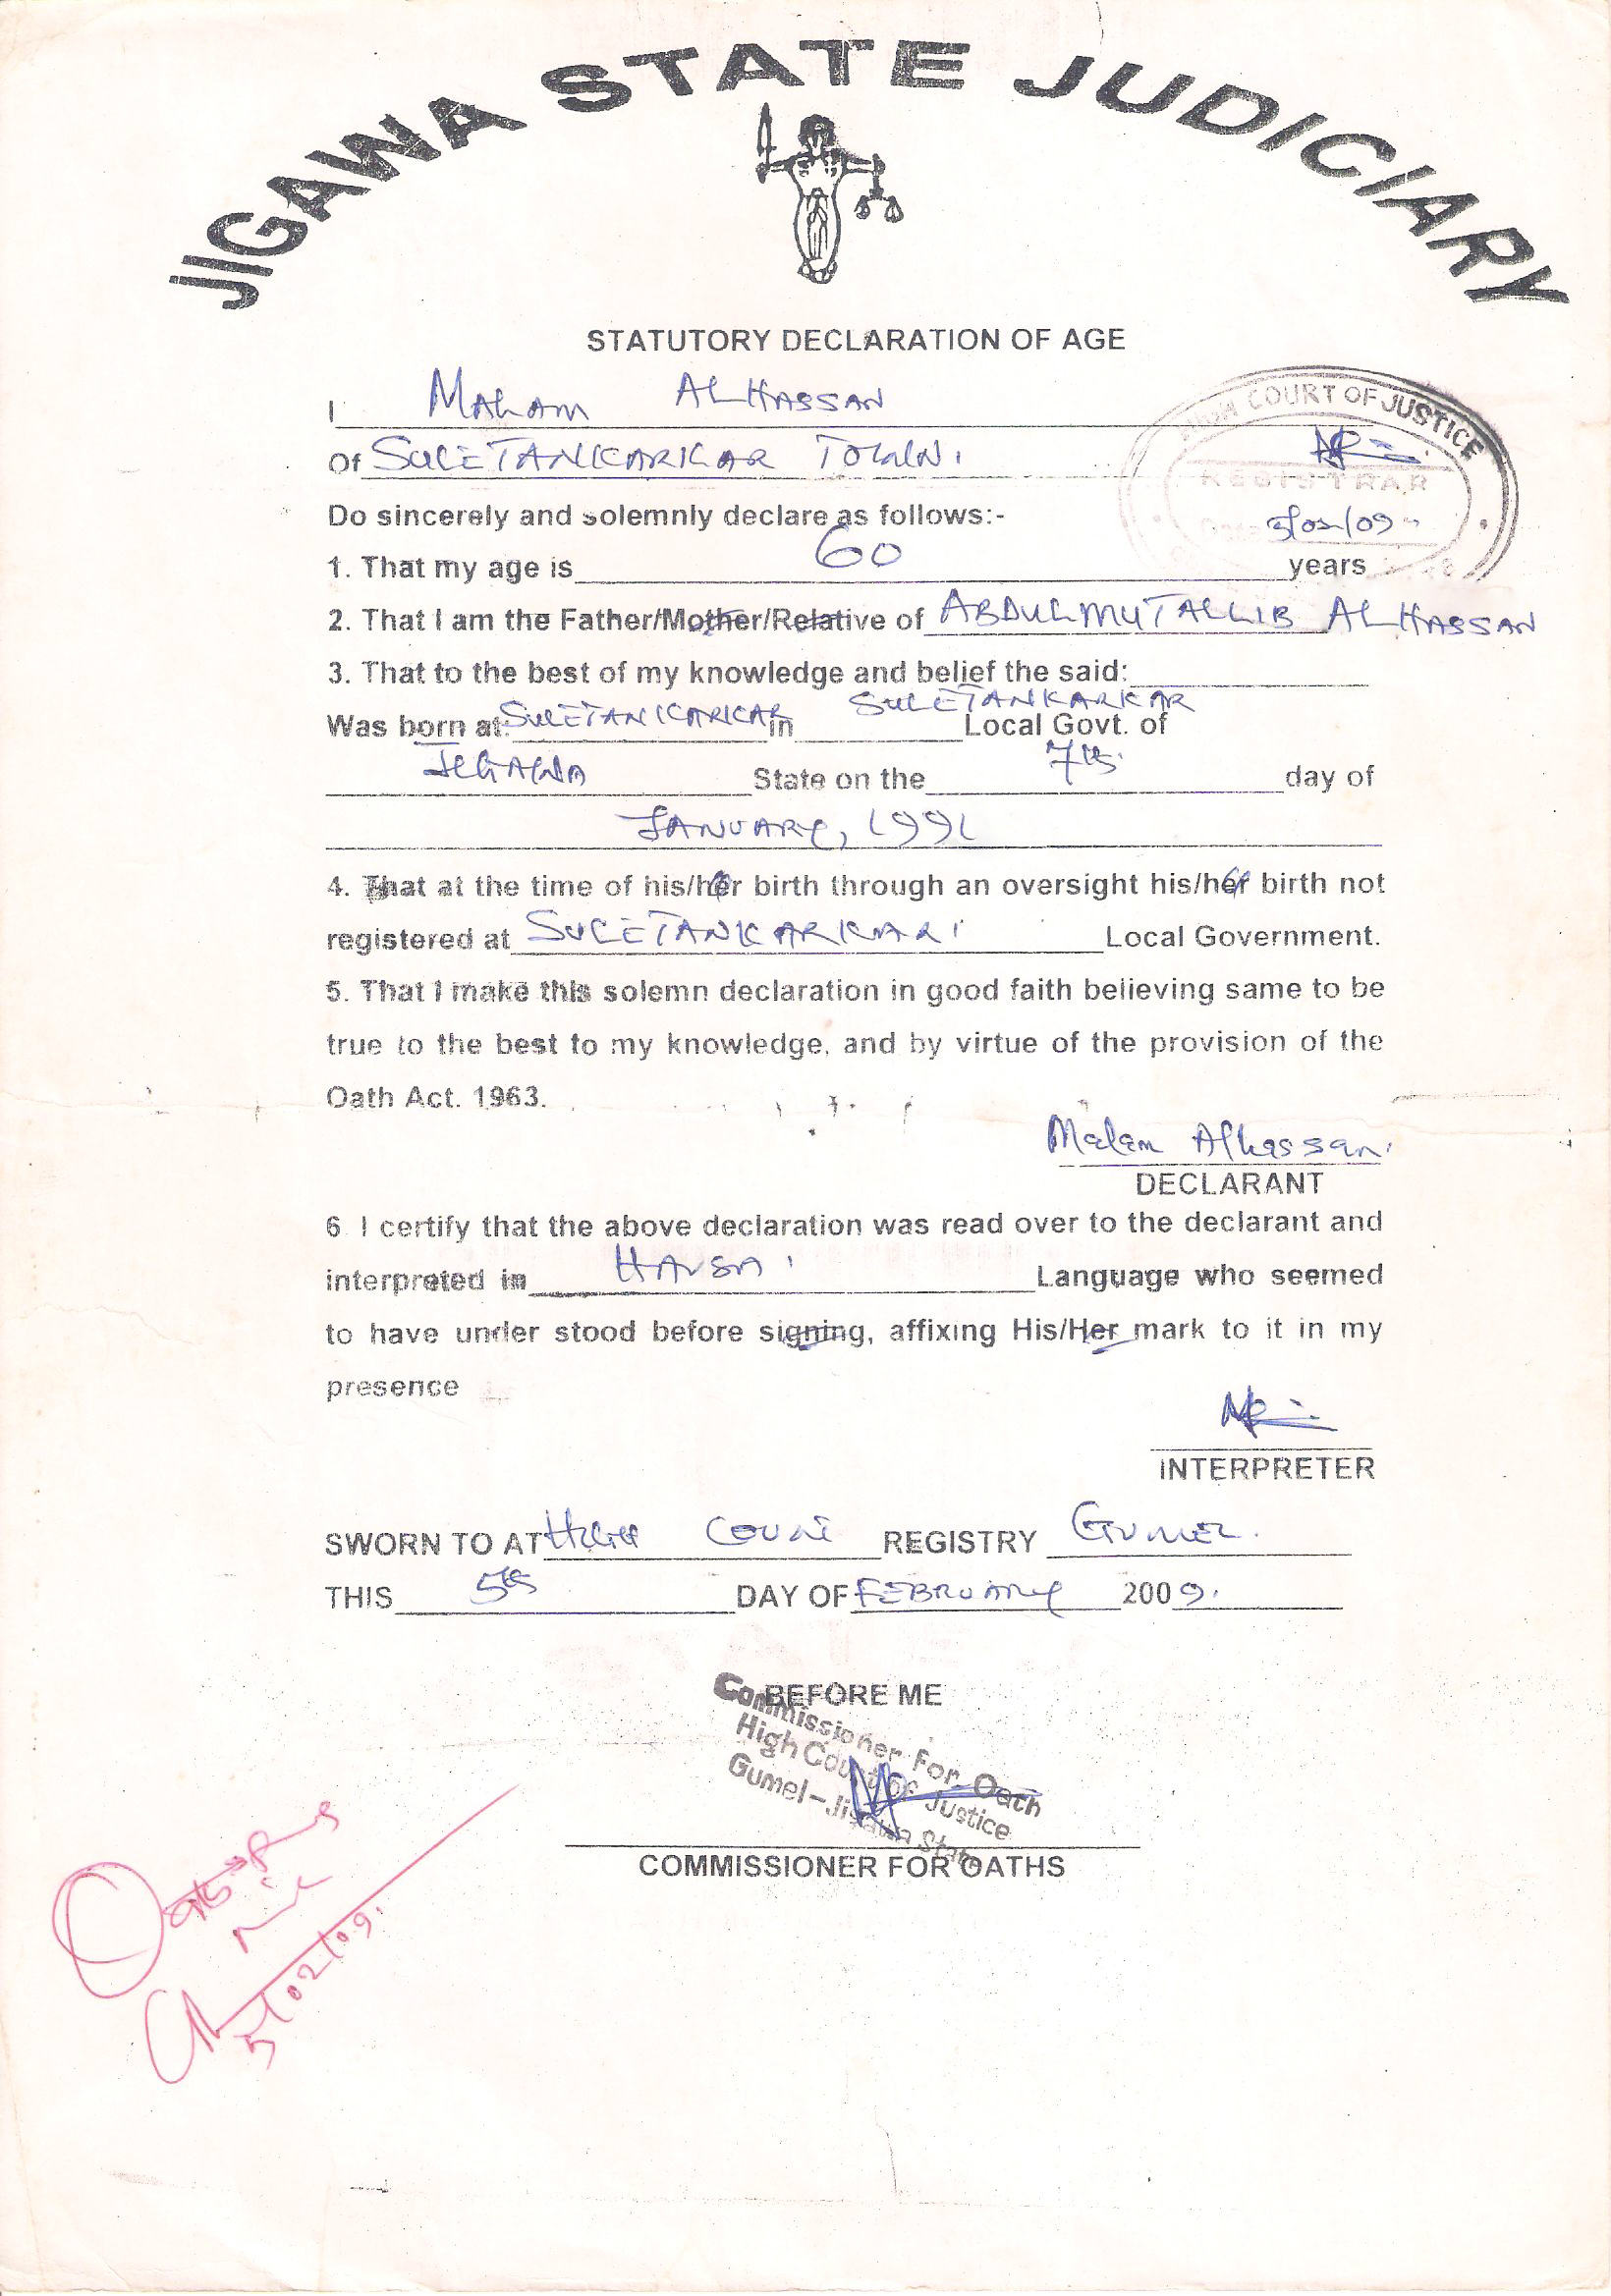 JIGAWA STATE JUDICIARY
STATUTORY DECLARATION OF AGE
I MALAM ALHASSAN
Of SULETANKARKAR TOWN.
HIGH COURT OF JUSTICE
REGISTRAR
5/02/09
Do sincerely and solemnly declare as follows:-
1. That my age is 60 years
2. That I am the Father/Mother/Relative of ABDULMUTALLIB ALHASSAN
3. That to the best of my knowledge and belief the said:
Was born at: SULETANKARKAR in SULETANKARKAR Local Govt. of
JIGAWA State on the 7th day of
JANUARY, 1991
4. That at the time of his/her birth through an oversight his/her birth not
registered at SULETANKARKAR Local Government.
5. That I make this solemn declaration in good faith believing same to be
true to the best to my knowledge, and by virtue of the provision of the
Oath Act. 1963.
Malam Alhassan
DECLARANT
6. I certify that the above declaration was read over to the declarant and
interpreted in HAUSA Language who seemed
to have under stood before signing, affixing His/Her mark to it in my
presence
INTERPRETER
SWORN TO AT HIGH COURT REGISTRY GUMEL.
THIS 5th DAY OF FEBRUARY 2009.
BEFORE ME
Commissioner For Oath
High Court of Justice
Gumel-Jigawa State
COMMISSIONER FOR OATHS
5/02/09.